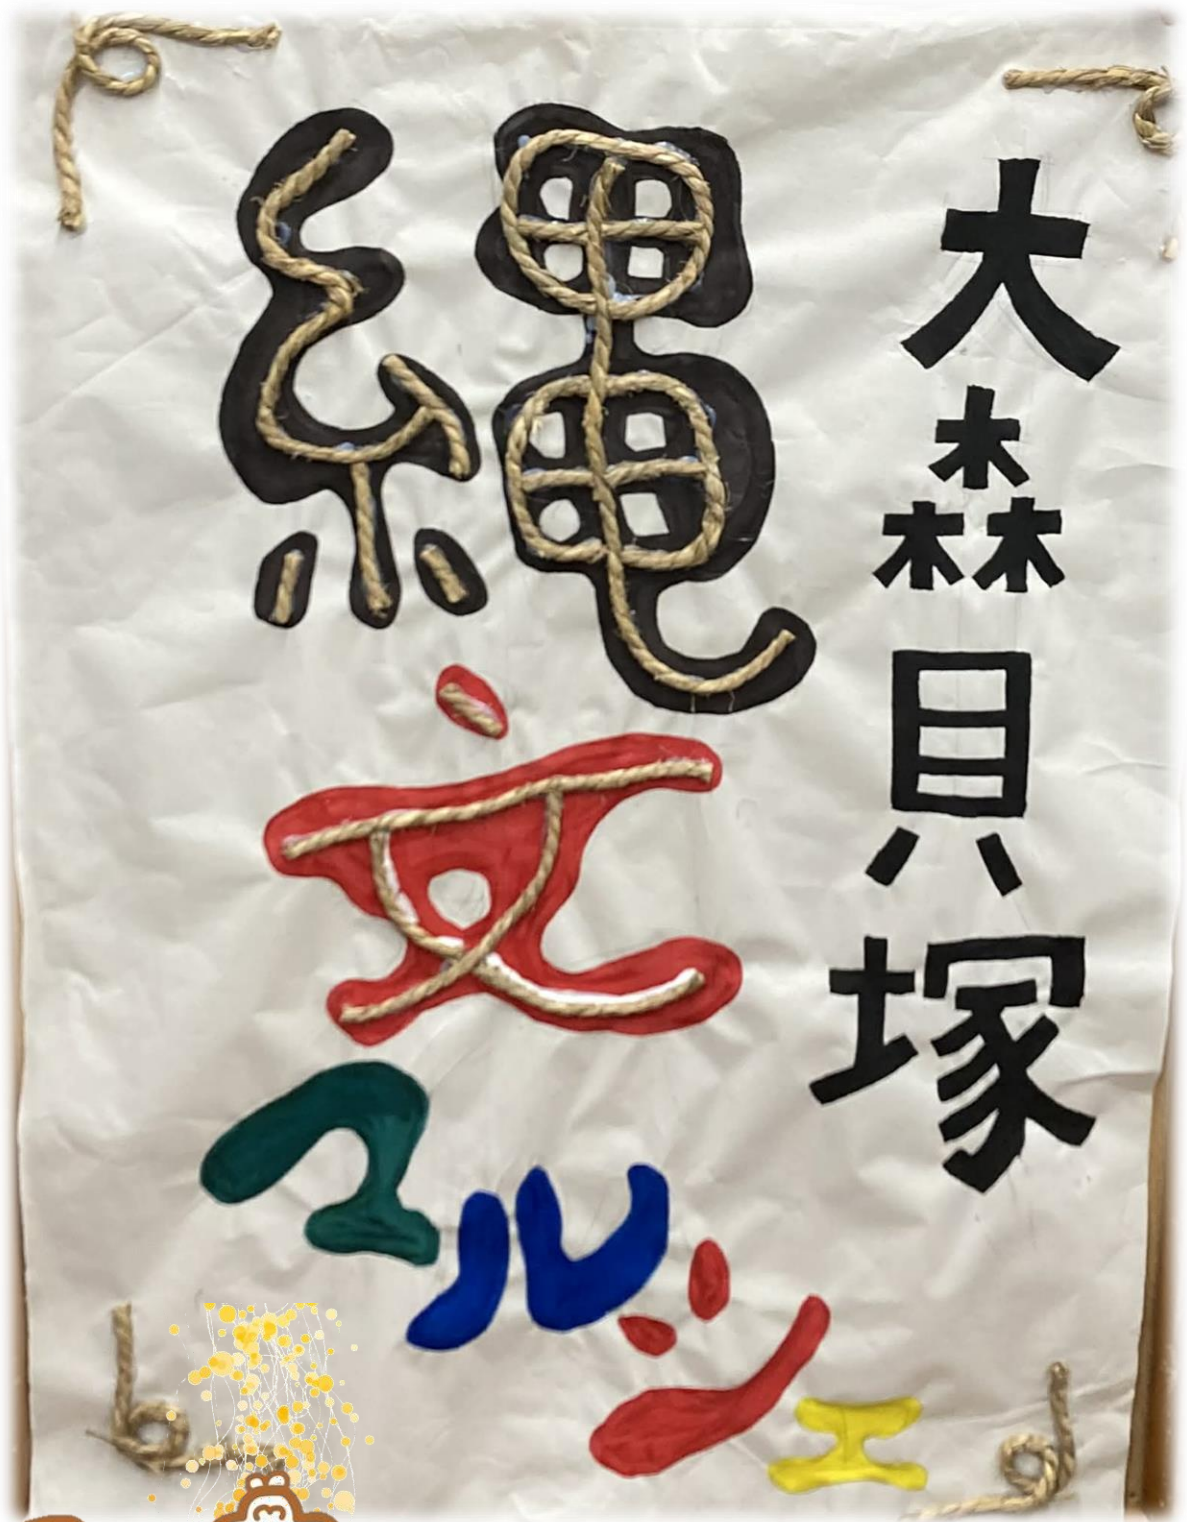 大森貝塚
縄文
マルシェ